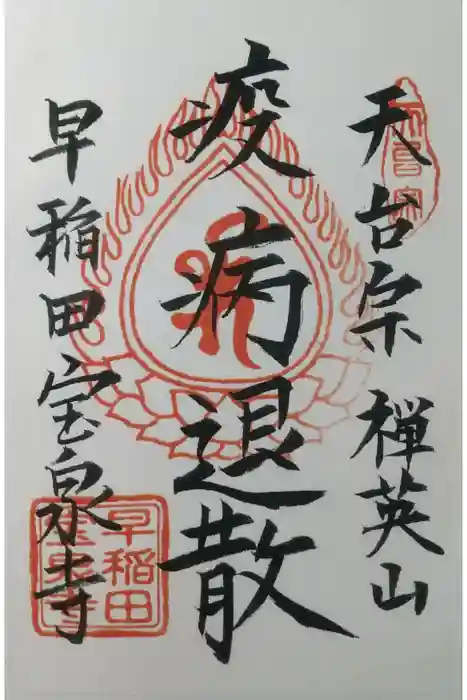 天台宗 禅英山
疫病退散
早稲田宝泉寺
早稲田
宝泉寺